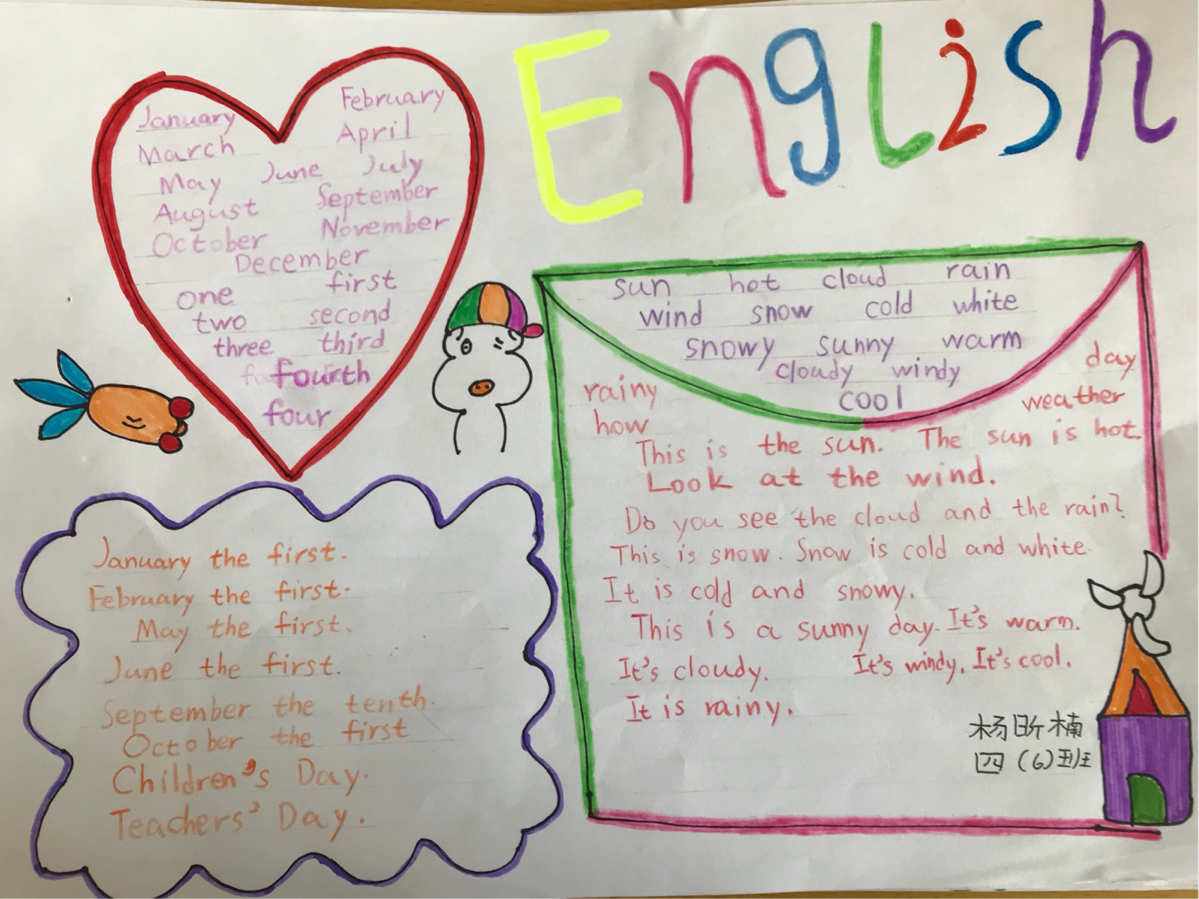 English
January February
March April
May June July
August September
October November
December
one first
two second
three third
fourth
four
sun hot cloud rain
wind snow cold white
snowy sunny warm
cloudy windy
cool
rainy day
how weather
This is the sun. The sun is hot.
Look at the wind.
Do you see the cloud and the rain?
This is snow. Snow is cold and white.
It is cold and snowy.
This is a sunny day. It's warm.
It's cloudy. It's windy. It's cool.
It is rainy.
杨昕楠
四(6)班
January the first.
February the first.
May the first.
June the first.
September the tenth.
October the first
Children's Day.
Teachers' Day.